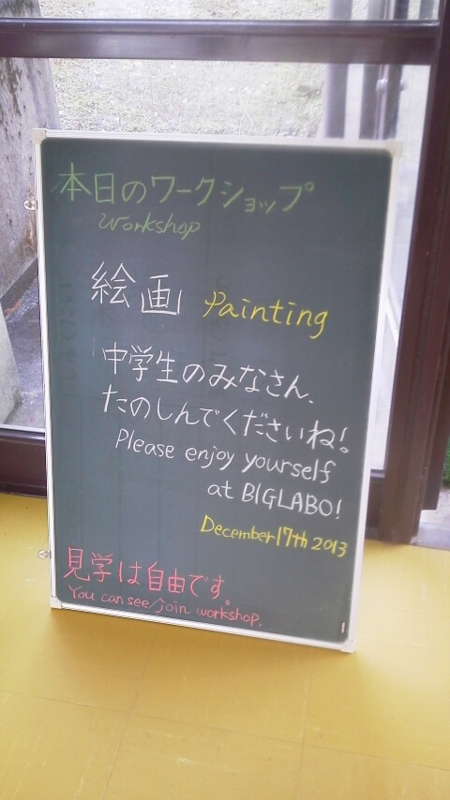 本日のワークショップ
Workshop
絵画 Painting
中学生のみなさん、
たのしんでくださいね!
Please enjoy yourself
at BIGLABO!
December 17th 2013
見学は自由です。
You can see/join workshop.